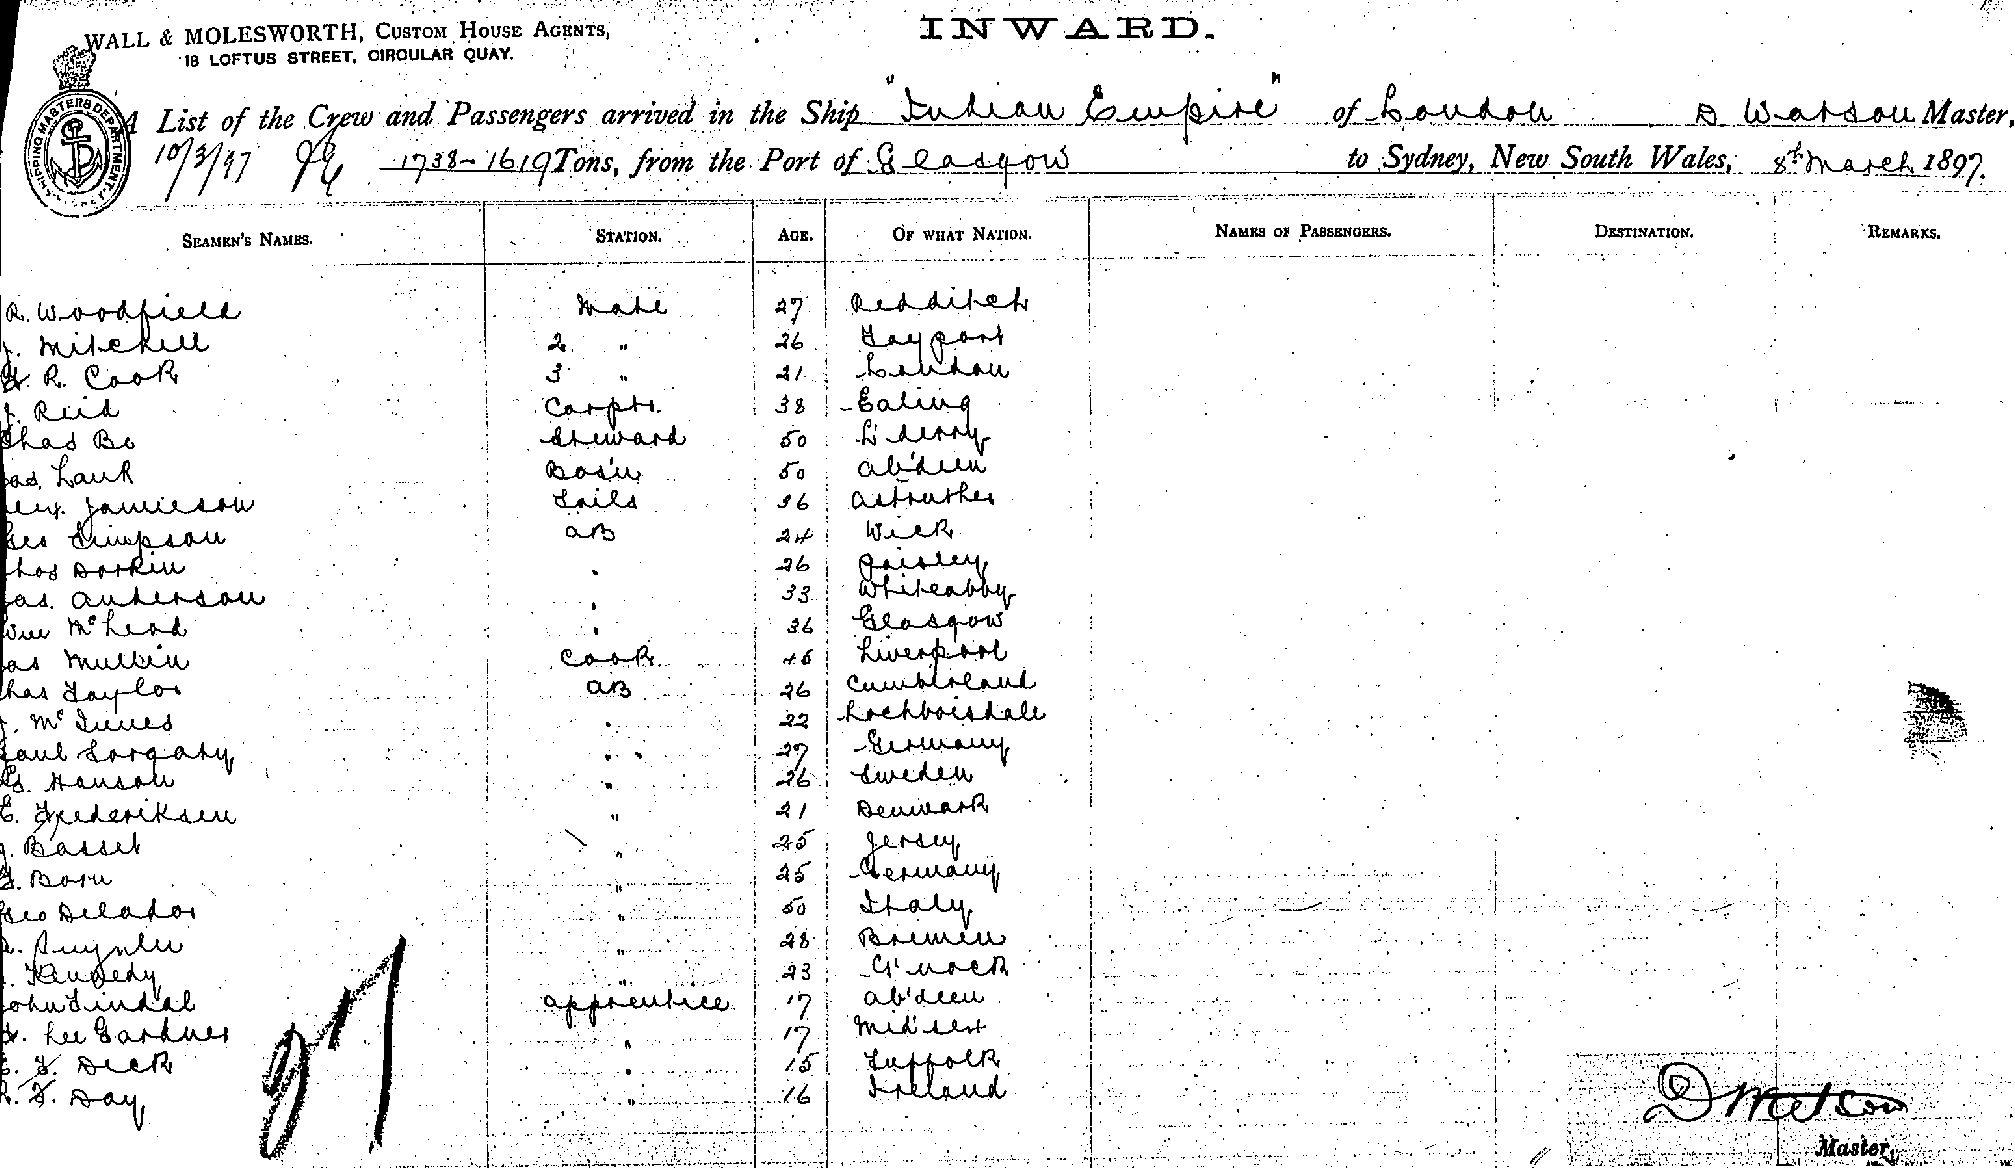 INWARD.
WALL & MOLESWORTH, CUSTOM HOUSE AGENTS,
18 LOFTUS STREET, CIRCULAR QUAY.
SHIPPING MASTERS DEPARTMENT
A List of the Crew and Passengers arrived in the Ship "Indian Empire" of London D Watson Master,
10/3/97 1738-1619 Tons, from the Port of Glasgow to Sydney, New South Wales, 8th March 1897.
SEAMEN'S NAMES. STATION. AGE. OF WHAT NATION. NAMES OF PASSENGERS. DESTINATION. REMARKS.
R. Woodfield Mate 27 Redditch
J. Mitchell 2 " 26 Tayport
R. Cook 3 " 21 London
J. Reid Carptr. 38 Ealing
Chas Bo Steward 50 L'derry
Jas. Bos'n 50 Ab'deen
Alex. Jamieson Sails 36 Astruther
Geo Simpson AB 24 Wick
Thos Dorkin . 26 Paisley
Jas. Anderson . 33 Whiteabby
Wm McLeod . 36 Glasgow
Jas Mullin Cook 46 Liverpool
Chas Taylor AB 26 Cumberland
J. McInnes . 22 Lochboisdale
Paul Sorgaty . . 27 Germany
Hanson " 26 Sweden
C. Frederiksen " 21 Denmark
J. Basset " 25 Jersey
Born " 25 Germany
Geo Delador " 50 Italy
" 28 Bremen
Kennedy " 23 G'nock
John Tindal apprentice 17 Ab'deen
Lee Gardner " 17 Mid'sex
F. Deck " 15 Suffolk
F. Day " 16 Ireland
97
D Watson
Master,